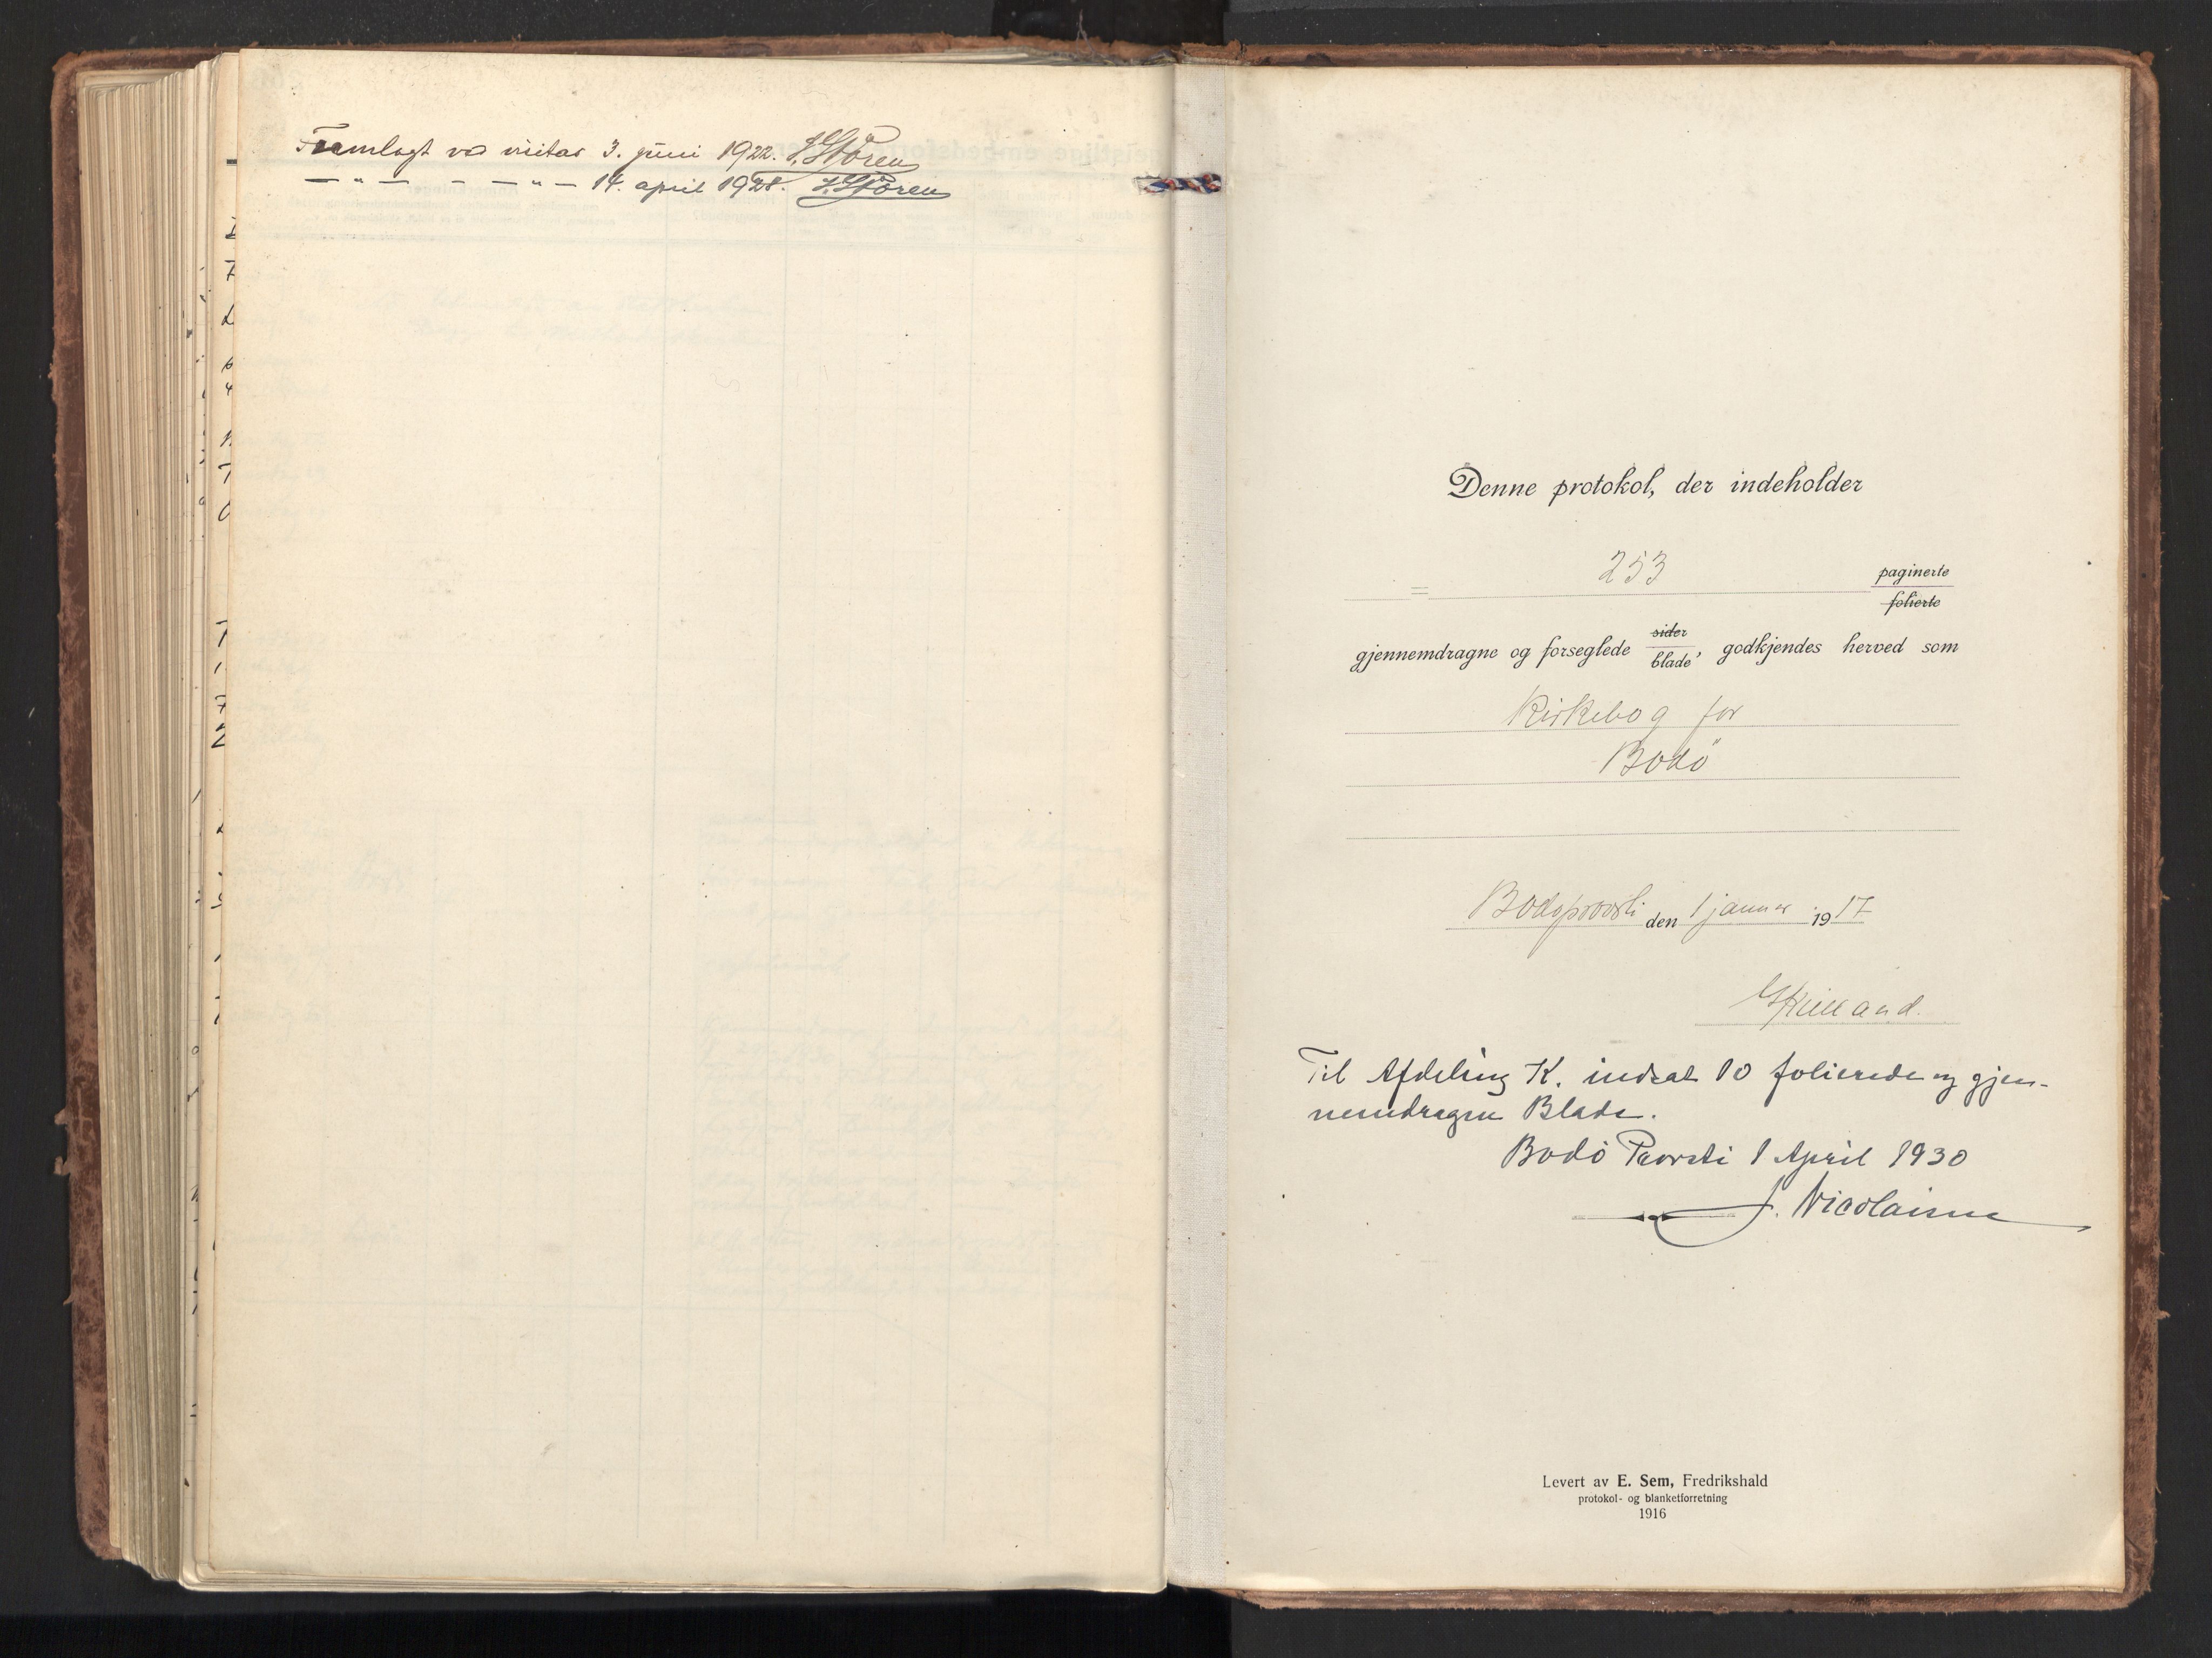 Fremlagt ved visitas 3. juni 1922. J. Stören
— " — — " — 14. april 1928. J. Stören
Denne protokol, der indeholder
= 253 paginerte
folierte
gjennemdragne og forseglede sider blade, godkjendes herved som
Kirkebog for
Bodö
Bodøprovsti den 1 januar 1917
Kielland.
Til Afdeling K. indsat 10 folierede og gjen-
nemdragne Blade.
Bodö Provsti 1 April 1930
J. Nicolaisen
Levert av E. Sem, Fredrikshald
protokol- og blanketforretning
1916